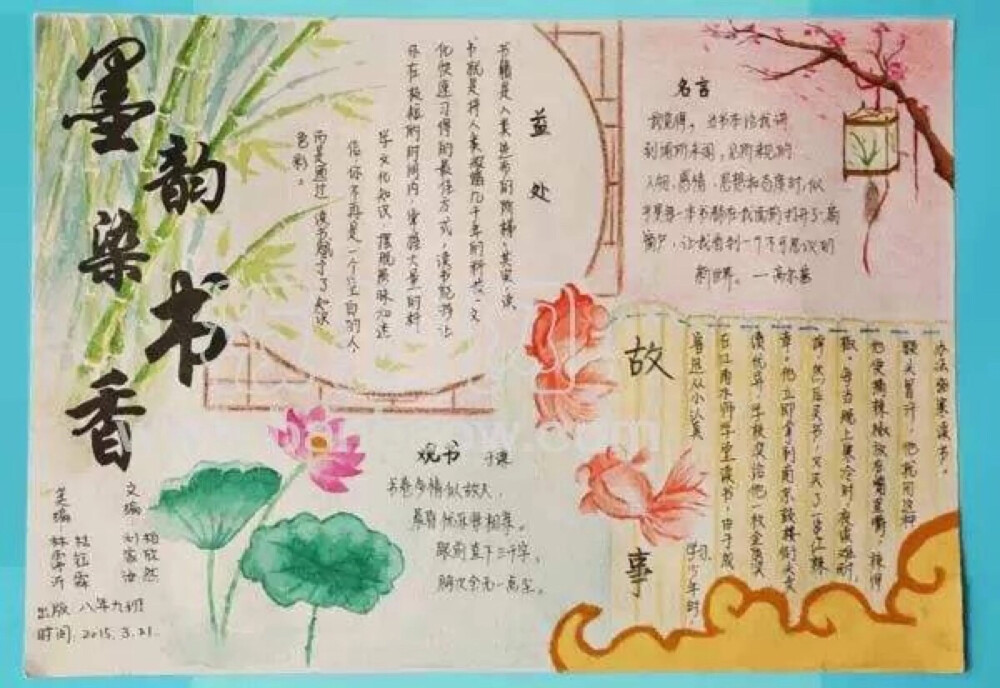 墨韵染书香
益处
书籍是人类进步的阶梯,其实,读
书就是将人类数几千年的科技、文
化快速习得的最佳方式,读书能够让
你在极短的时间内,掌握大量的科
学文化知识,摆脱愚昧
信,你不再是一个空白的人,
而是通过读书赋予了知识
色彩。
名言
我觉得,当书本给我讲
到闻所未闻,见所未见的
人物、感情、思想和态度时,似
乎是每一本书都在我面前打开了一扇
窗户,让我看到一个不可思议的
新世界。—高尔基
故事
鲁迅从小认真
学习。少年时,
在江南水师学堂读书,由于成
读优异,学校奖给他一枚金质奖
章,他立即拿到南京鼓楼街头卖
然后买书,又买了一串红辣
椒。每当晚上寒冷时,夜读难耐,
他便摘辣椒放在嘴里嚼,辣得
额头冒汗,他就用这种
办法坚持读书。
观书 于谦
书卷多情似故人,
晨昏忧乐每相亲。
眼前直下三千字,
胸次全无一点尘。
文编 柏欣然
刘家
美编
林钰霖
出版 八年九班
时间.2015.3.21.